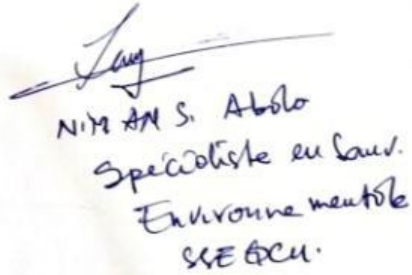 NIMAN S. Abolo
Spécialiste en Sauv.
Environnementale